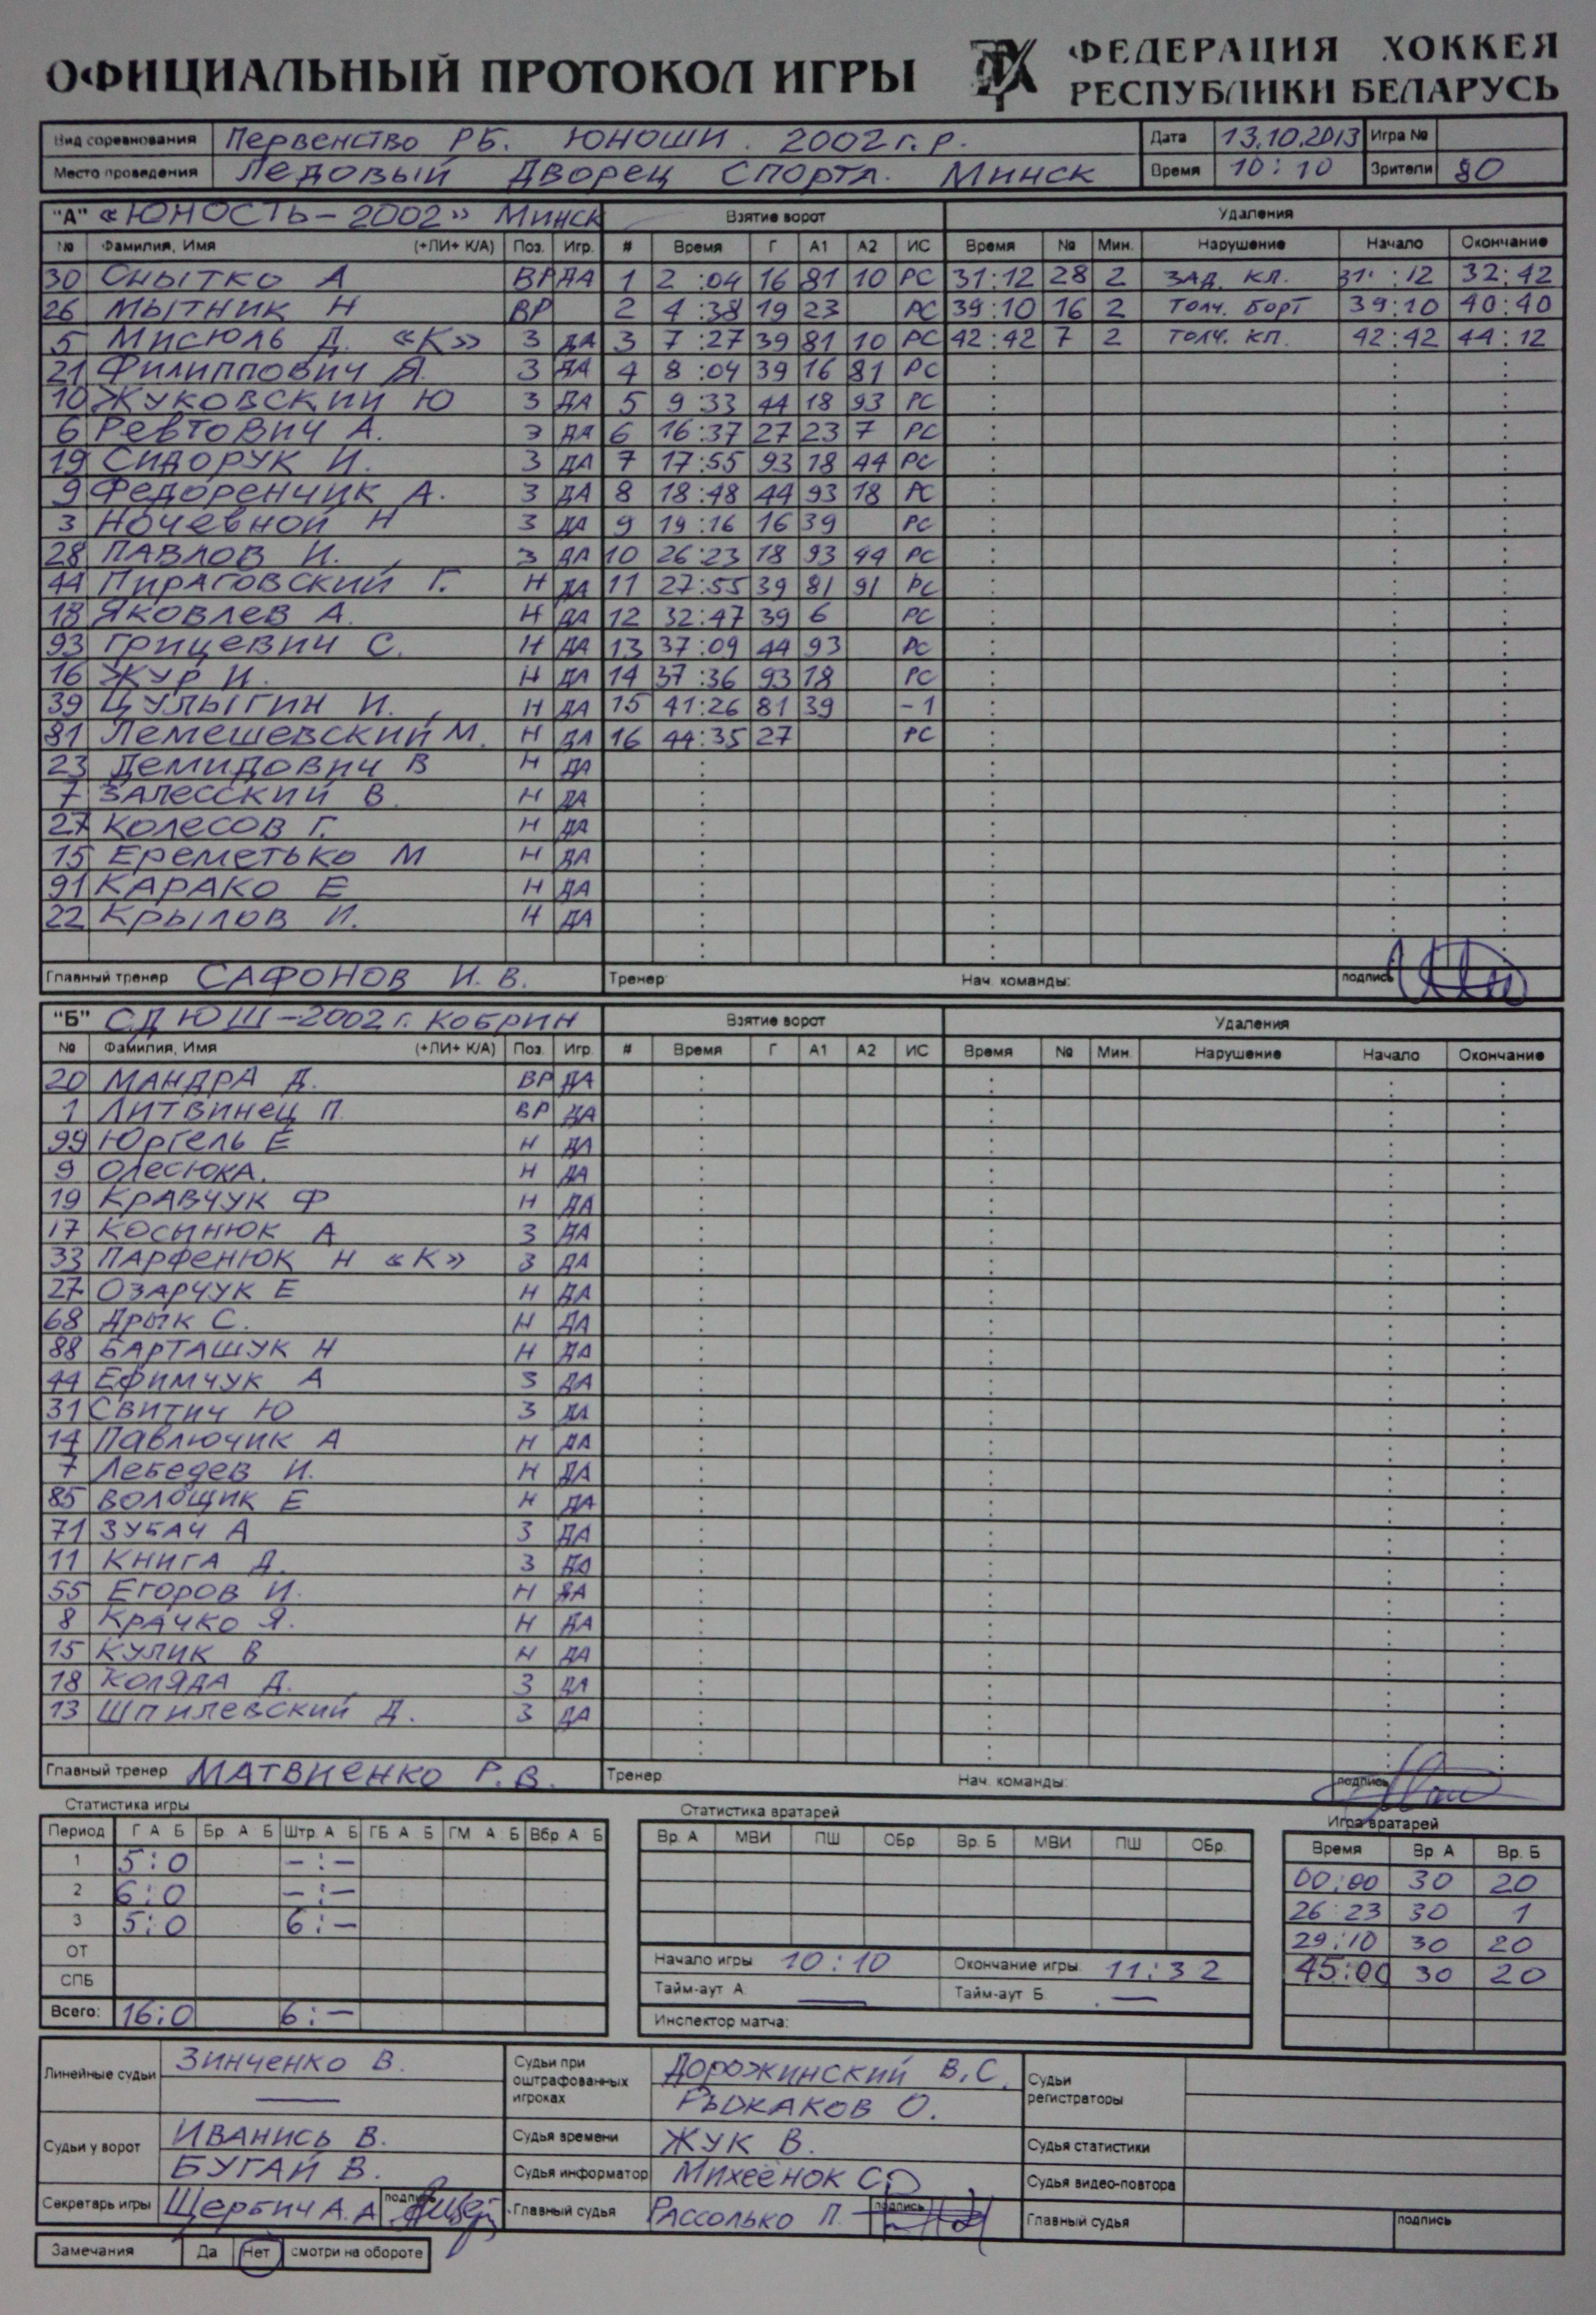 ОФИЦИАЛЬНЫЙ ПРОТОКОЛ ИГРЫ ФЕДЕРАЦИЯ ХОККЕЯ
РЕСПУБЛИКИ БЕЛАРУСЬ
Вид соревнования Первенство РБ. ЮНОШИ. 2002 г.р. Дата 13.10.2013 Игра №
Место проведения Ледовый Дворец Спорта. Минск Время 10:10 Зрители 80
"А" «ЮНОСТЬ-2002» Минск Взятие ворот Удаления
№ Фамилия, Имя (+ЛИ+ К/А) Поз. Игр. # Время Г А1 А2 ИС Время № Мин. Нарушение Начало Окончание
30 Снытко А ВР ДА 1 2:04 16 81 10 РС 31:12 28 2 ЗАД. КЛ. 31:12 32:42
26 Мытник Н ВР 2 4:38 19 23 РС 39:10 16 2 ТОЛЧ. БОРТ 39:10 40:40
5 Мисюль Д. «К» З ДА 3 7:27 39 81 10 РС 42:42 7 2 ТОЛЧ. КЛ. 42:42 44:12
21 Филиппович Я. З ДА 4 8:04 39 16 81 РС
10 Жуковский Ю З ДА 5 9:33 44 18 93 РС
6 Ревтович А. З ДА 6 16:37 27 23 7 РС
19 Сидорук И. З ДА 7 17:55 93 18 44 РС
9 Федоренчик А. З ДА 8 18:48 44 93 18 РС
3 Ночевной Н З ДА 9 19:16 16 39 РС
28 Павлов И. З ДА 10 26:23 18 93 44 РС
44 Пираговский Г. Н ДА 11 27:55 39 81 91 РС
18 Яковлев А. Н ДА 12 32:47 39 6 РС
93 Грицевич С. Н ДА 13 37:09 44 93 РС
16 Жур И. Н ДА 14 37:36 93 18 РС
39 Цулыгин И. Н ДА 15 41:26 81 39 -1
81 Лемешевский М. Н ДА 16 44:35 27 РС
23 Демидович В Н ДА
7 Залесский В. Н ДА
27 Колесов Г. Н ДА
15 Ереметько М Н ДА
91 Карако Е Н ДА
22 Крылов И. Н ДА
Главный тренер САФОНОВ И. В. Тренер: Нач. команды: подпись
"Б" СДЮШ-2002 г. КОБРИН Взятие ворот Удаления
№ Фамилия, Имя (+ЛИ+ К/А) Поз. Игр. # Время Г А1 А2 ИС Время № Мин. Нарушение Начало Окончание
20 МАНДРА Д. ВР ДА
1 Литвинец П. ВР ДА
99 Юргель Е Н ДА
9 Олесюк А. Н ДА
19 Кравчук Ф Н ДА
17 Косынюк А З ДА
33 Парфенюк Н «К» З ДА
27 Озарчук Е Н ДА
68 Дрык С. Н ДА
88 Барташук Н Н ДА
44 Ефимчук А З ДА
31 Свитич Ю З ДА
14 Павлючик А Н ДА
7 Лебедев И. Н ДА
85 Волощик Е Н ДА
71 Зубач А З ДА
11 Книга Д. З ДА
55 Егоров И. Н ДА
8 Крачко Я. Н ДА
15 Кулик В Н ДА
18 Коляда Д. З ДА
13 Шпилевский Д. З ДА
Главный тренер МАТВИЕНКО Р. В. Тренер Нач. команды: подпись
Статистика игры Статистика вратарей Игра вратарей
Период Г А Б Бр. А Б Штр. А Б ГБ А Б ГМ А Б Вбр А Б Вр. А МВИ ПШ ОБр Вр. Б МВИ ПШ ОБр. Время Вр. А Вр. Б
1 5:0 -:- 00:00 30 20
2 6:0 -:- 26:23 30 1
3 5:0 6:- 29:10 30 20
ОТ Начало игры 10:10 Окончание игры 11:32 45:00 30 20
СПБ Тайм-аут А — Тайм-аут Б —
Всего: 16:0 6:- Инспектор матча:
Линейные судьи Зинченко В. — Судьи при оштрафованных игроках Дорожинский В.С. Рыжаков О. Судьи регистраторы
Судьи у ворот Иванись В. Судья времени Жук В. Судья статистики
Бугай В. Судья информатор Михеёнок С Судья видео-повтора
Секретарь игры Щербич А.А подпись Главный судья Рассолько П. подпись Главный судья подпись
Замечания Да Нет смотри на обороте